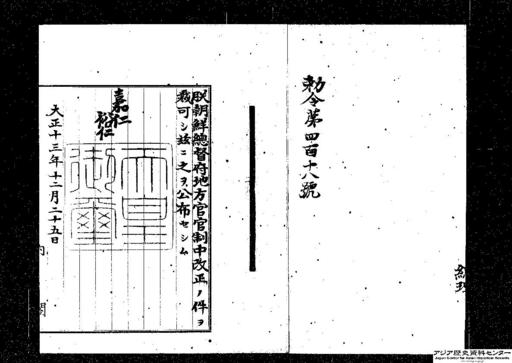 勅令第四百十八號
朕朝鮮總督府地方官官制中改正ノ件ヲ
裁可シ玆ニ之ヲ公布セシム
嘉仁
裕仁
天皇
御璽
大正十三年十二月二十五日
内閣
アジア歴史資料センター
Japan Center for Asian Historical Records